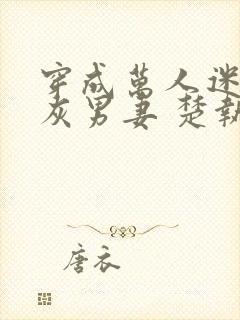 穿成萬人迷
灰男妻 楚執
唐衣